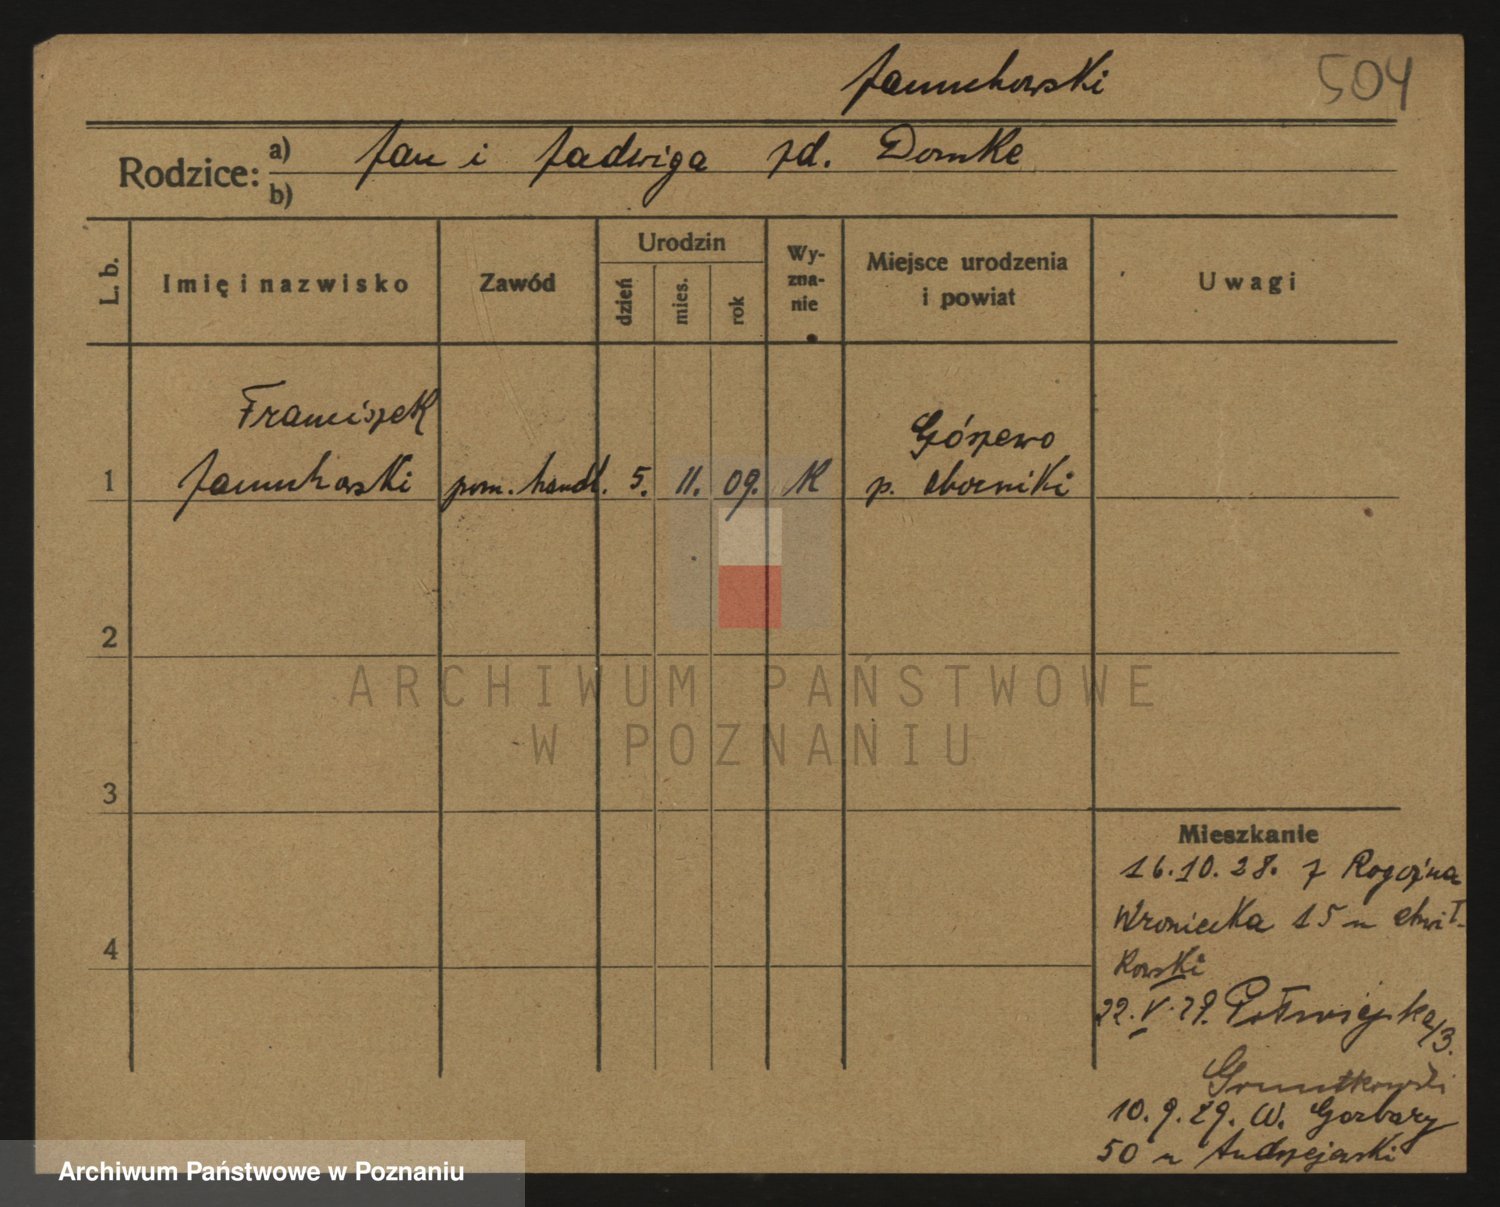 Januchowski
504
Rodzice: a) Jan i Jadwiga zd. Domke
b)
L. b.
Imię i nazwisko
Zawód
Urodzin
dzień
mies.
rok
Wy-
zna-
nie
Miejsce urodzenia
i powiat
Uwagi
Franciszek
1 Januchowski pom. handl. 5. 11. 09. K
Gószewo
p. Oborniki
2
3
4
Mieszkanie
16.10.28. z Rogoźna
Wroniecka 15 u Chwił-
kowski
22.V.29. Półwiejska/3.
10.9.29. W. Garbary
50 u Andrzejewski
ARCHIWUM PAŃSTWOWE
W POZNANIU
Archiwum Państwowe w Poznaniu